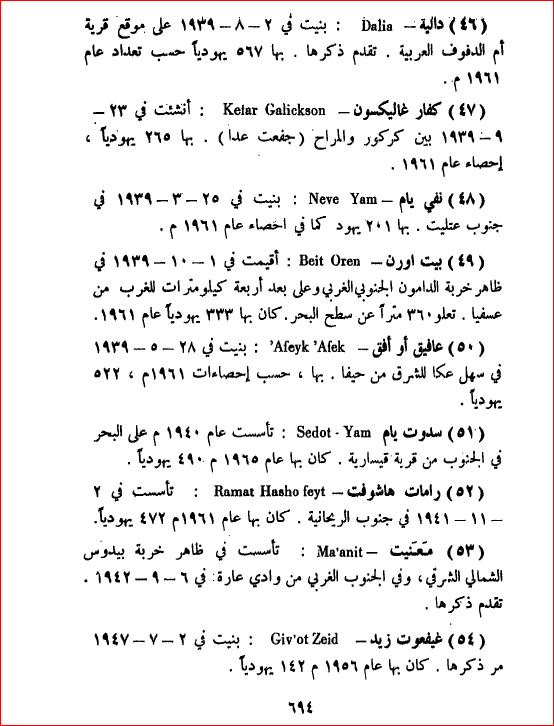 (٤٦) دالية – Dalia : بنيت في ٢ – ٨ – ١٩٣٩ على موقع قرية
أم الدفوف العربية . تقدم ذكرها . بها ٥٦٧ يهودياً حسب تعداد عام
١٩٦١ م .
(٤٧) كفار غاليكسون – Kefar Galickson : أنشئت في ٢٣ –
٩ – ١٩٣٩ بين كركور والمراح (جفعت عدا) . بها ٢٦٥ يهودياً ،
إحصاء عام ١٩٦١ .
(٤٨) نفي يام – Neve Yam : بنيت في ٢٥ – ٣ – ١٩٣٩ في
جنوب عتليت . بها ٢٠١ يهود كما في احصاء عام ١٩٦١ م .
(٤٩) بيت اورن – Beit Oren : أقيمت في ١ – ١٠ – ١٩٣٩ في
ظاهر خربة الدامون الجنوبي الغربي وعلى بعد أربعة كيلومترات للغرب من
عسفيا . تعلو ٣٦٠ متراً عن سطح البحر . كان بها ٣٣٣ يهودياً عام ١٩٦١.
(٥٠) عافيق أو أفق – 'Afeyk 'Afek : بنيت في ٢٨ – ٥ – ١٩٣٩
في سهل عكا للشرق من حيفا . بها ، حسب إحصاءات ١٩٦١م ، ٥٢٢
يهودياً .
(٥١) سدوت يام Sedot - Yam : تأسست عام ١٩٤٠ م على البحر
في الجنوب من قرية قيسارية . كان بها عام ١٩٦٥ م ٤٩٠ يهودياً .
(٥٢) رامات هاشوفت – Ramat Hasho feyt : تأسست في ٢
– ١١ – ١٩٤١ في جنوب الريحانية . كان بها عام ١٩٦١م ٤٧٢ يهودياً.
(٥٣) مَعَنيت – Ma'anit : تأسست في ظاهر خربة بيدوس
الشمالي الشرقي ، وفي الجنوب الغربي من وادي عارة في ٦ – ٩ – ١٩٤٢ .
تقدم ذكرها .
(٥٤) غيفعوت زيد – Giv'ot Zeid : بنيت في ٢ – ٧ – ١٩٤٧
مر ذكرها . كان بها عام ١٩٥٦ م ١٤٢ يهودياً .
٦٩٤